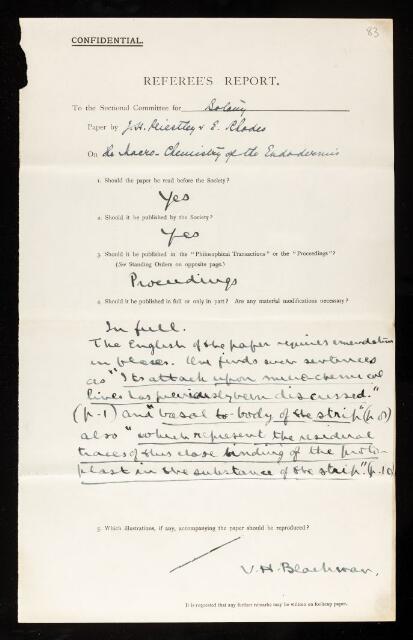 83
CONFIDENTIAL.
REFEREE'S REPORT.
To the Sectional Committee for Botany
Paper by J. H. Priestley & E. Rhodes
On the Macro-Chemistry of the Endodermis
1. Should the paper be read before the Society?
Yes
2. Should it be published by the Society?
Yes
3. Should it be published in the "Philosophical Transactions" or the "Proceedings"?
(See Standing Orders on opposite page.)
Proceedings
4. Should it be published in full or only in part? Are any material modifications necessary?
In full.
The English of the paper requires emendation
in places. One finds such sentences
as "Its attack upon micro-chemical
lines has previously been discussed."
(p. 1) and "basal to body of the strip" (p. 8)
also "which represent the residual
traces of this close binding of the proto-
plast in the substance of the strip." (p. 10)
5. Which illustrations, if any, accompanying the paper should be reproduced?
V. H. Blackman.
It is requested that any further remarks may be written on foolscap paper.